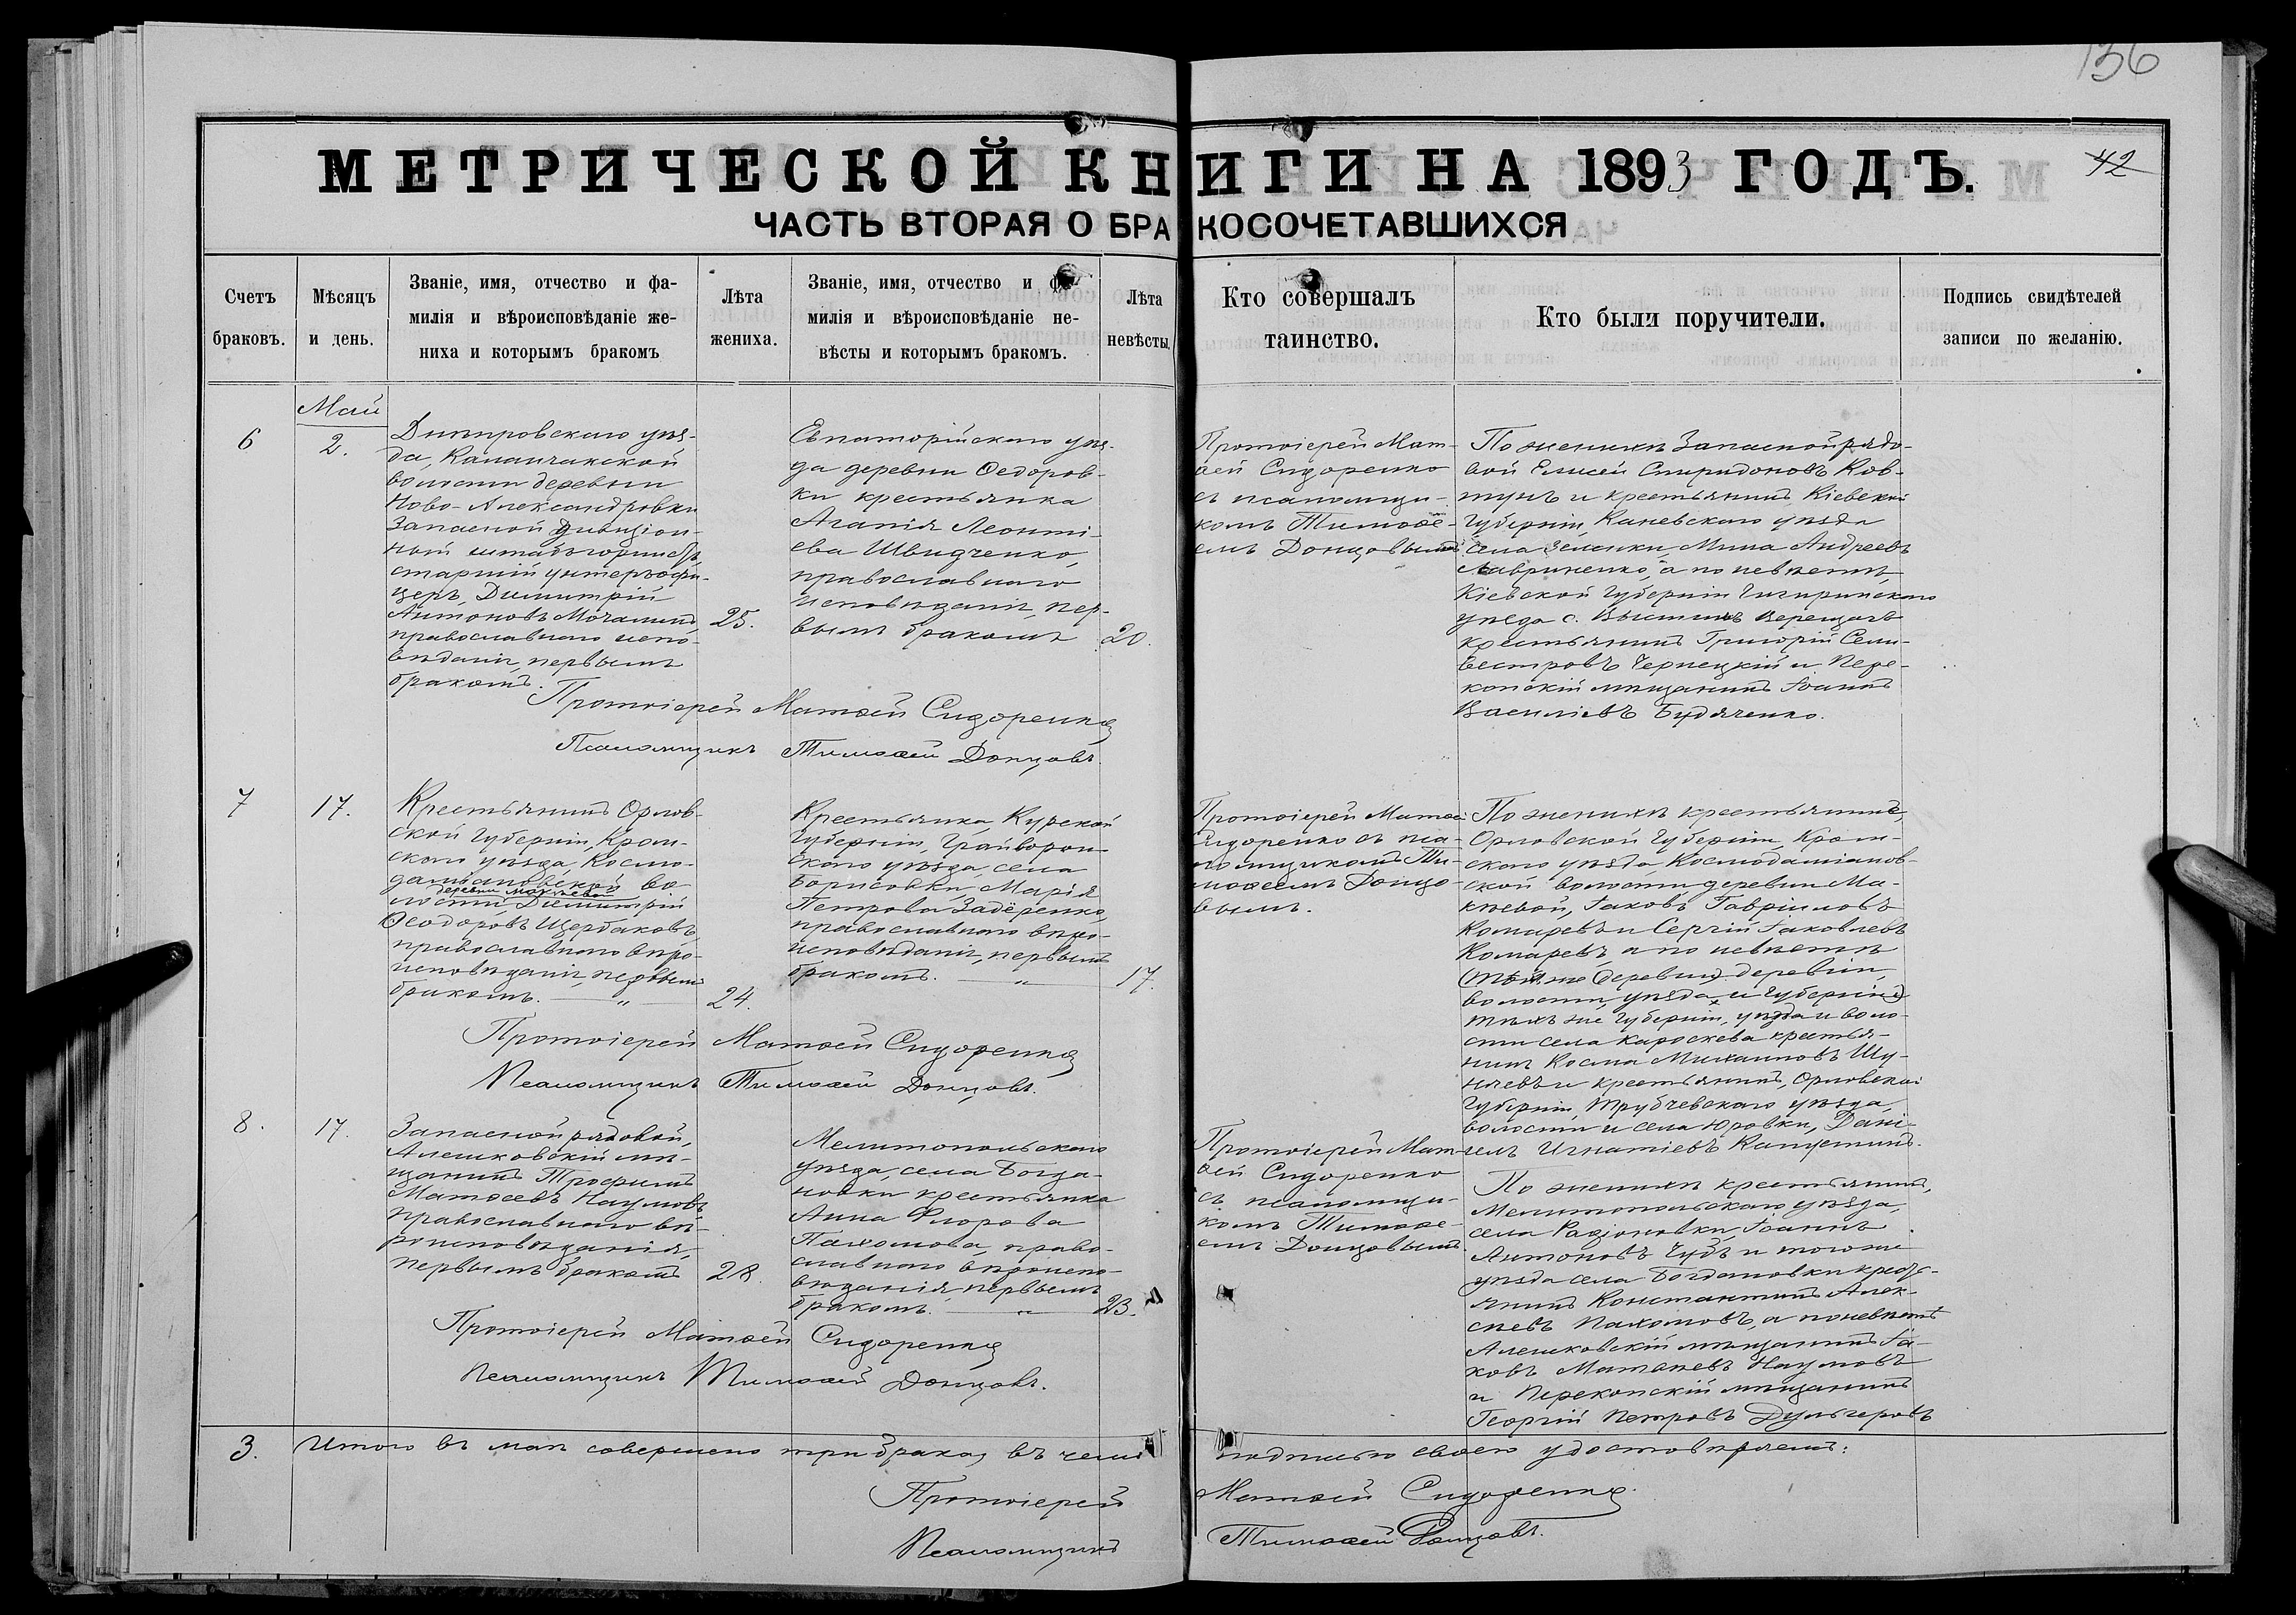 136
МЕТРИЧЕСКОЙ КНИГИ НА 1893 ГОДЪ.
42
ЧАСТЬ ВТОРАЯ О БРАКОСОЧЕТАВШИХСЯ
Счетъ браковъ.
Мѣсяцъ и день.
Званіе, имя, отчество и фа-
милія и вѣроисповѣданіе же-
ниха и которымъ бракомъ
Лѣта
жениха.
Званіе, имя, отчество и фа-
милія и вѣроисповѣданіе не-
вѣсты и которымъ бракомъ.
Лѣта
невѣсты.
Кто совершалъ
таинство.
Кто были поручители.
Подпись свидѣтелей
записи по желанію.
Май
6
2.
Днѣпровскаго уѣз-
да, Каланчакской
волости деревни
Ново-Александровки
Запасной дивизіон-
ный штабъ-горнистъ,
старшій унтеръ-офи-
церъ, Димитрій
Антоновъ Мочалинъ,
православнаго испо-
вѣданія, первымъ
бракомъ.
25.
Евпаторійскаго уѣз-
да деревни Ѳедоров-
ки крестьянка
Агапія Леонті-
ева Швидченко,
православнаго
исповѣданія, пер-
вымъ бракомъ
20.
Протоіерей Мат-
ѳей Сидоренко
съ псаломщи-
комъ Тимоѳе-
емъ Донцовымъ
По женихѣ Запасной рядо-
вой Елисей Спиридоновъ Ков-
тунъ и крестьянинъ Кіевской
Губерніи, Каневскаго уѣзда
села Зеленки, Мина Андреевъ
Лавриненко, а по невѣстѣ,
Кіевской Губерніи Чигиринскаго
уѣзда с. Вершацъ
крестьянинъ Григорій Сели-
вестровъ Чернецкій и Пере-
копскій мѣщанинъ Іоаннъ
Василіевъ Будяченко.
Протоіерей Матѳей Сидоренко
Псаломщикъ Тимоѳей Донцовъ.
7
17.
Крестьянинъ Орлов-
ской Губерніи, Кром-
скаго уѣзда, Космо-
даміановской во-
деревни Макѣевой
лости Димитрій
Ѳеодоровъ Щербаковъ,
православнаго вѣро-
исповѣданія, первымъ
бракомъ. — „ —
24.
Крестьянка, Курской
Губерніи, Грайворон-
скаго уѣзда, села
Борисовки, Марія
Петрова Задёренко,
православнаго вѣро-
исповѣданія, первымъ
бракомъ. — „ —
17.
Протоіерей Матѳей
Сидоренко съ пса-
ломщикомъ Ти-
моѳеемъ Донцо-
вымъ.
По женихѣ крестьяне,
Орловской Губерніи, Кром-
скаго уѣзда, Космодаміанов-
ской волости, деревни Ма-
кѣевой, Іаковъ Гавріиловъ
Комаревъ и Сергій Іаковлевъ
Комаревъ, а по невѣстѣ
(той же деревни) деревни,
волости, уѣзда и Губерніи)
тѣхъ же Губерніи, уѣзда и воло-
сти села Кароскова крестья-
нинъ Косма Михаиловъ Шу-
няевъ и крестьянинъ, Орловской
Губерніи, Трубчевскаго уѣзда,
волости и села Юровки, Дані-
илъ Игнатіевъ Капустинъ.
Протоіерей Матѳей Сидоренко
Псаломщикъ Тимоѳей Донцовъ.
8.
17.
Запасной рядовой,
Алешковскій мѣ-
щанинъ Трофимъ
Матѳеевъ Наумовъ
православнаго вѣ-
роисповѣданія,
первымъ бракомъ
28.
Мелитопольскаго
уѣзда, села Богда-
новки крестьянка
Анна Флорова
Пахомова, право-
славнаго вѣроиспо-
вѣданія, первымъ
бракомъ. — „ —
23.
Протоіерей Мат-
ѳей Сидоренко
съ псаломщи-
комъ Тимоѳе-
емъ Донцовымъ.
По женихѣ крестьянинъ,
Мелитопольскаго уѣзда,
села Радіоновки, Іоаннъ
Антоновъ Чубъ и того же
уѣзда села Богдановки крест-
янинъ Константинъ Алек-
сѣевъ Пахомовъ, а по невѣстѣ
Алешковскій мѣщанинъ Іа-
ковъ Матѳеевъ Наумовъ
и Перекопскій мѣщанинъ
Георгій Петровъ Дульгеровъ
Протоіерей Матѳей Сидоренко
Псаломщикъ Тимоѳей Донцовъ.
3. Итого въ маѣ совершено три брака, въ чемъ подписью своею удостовѣряемъ:
Протоіерей Матѳей Сидоренко.
Псаломщикъ Тимоѳей Донцовъ.